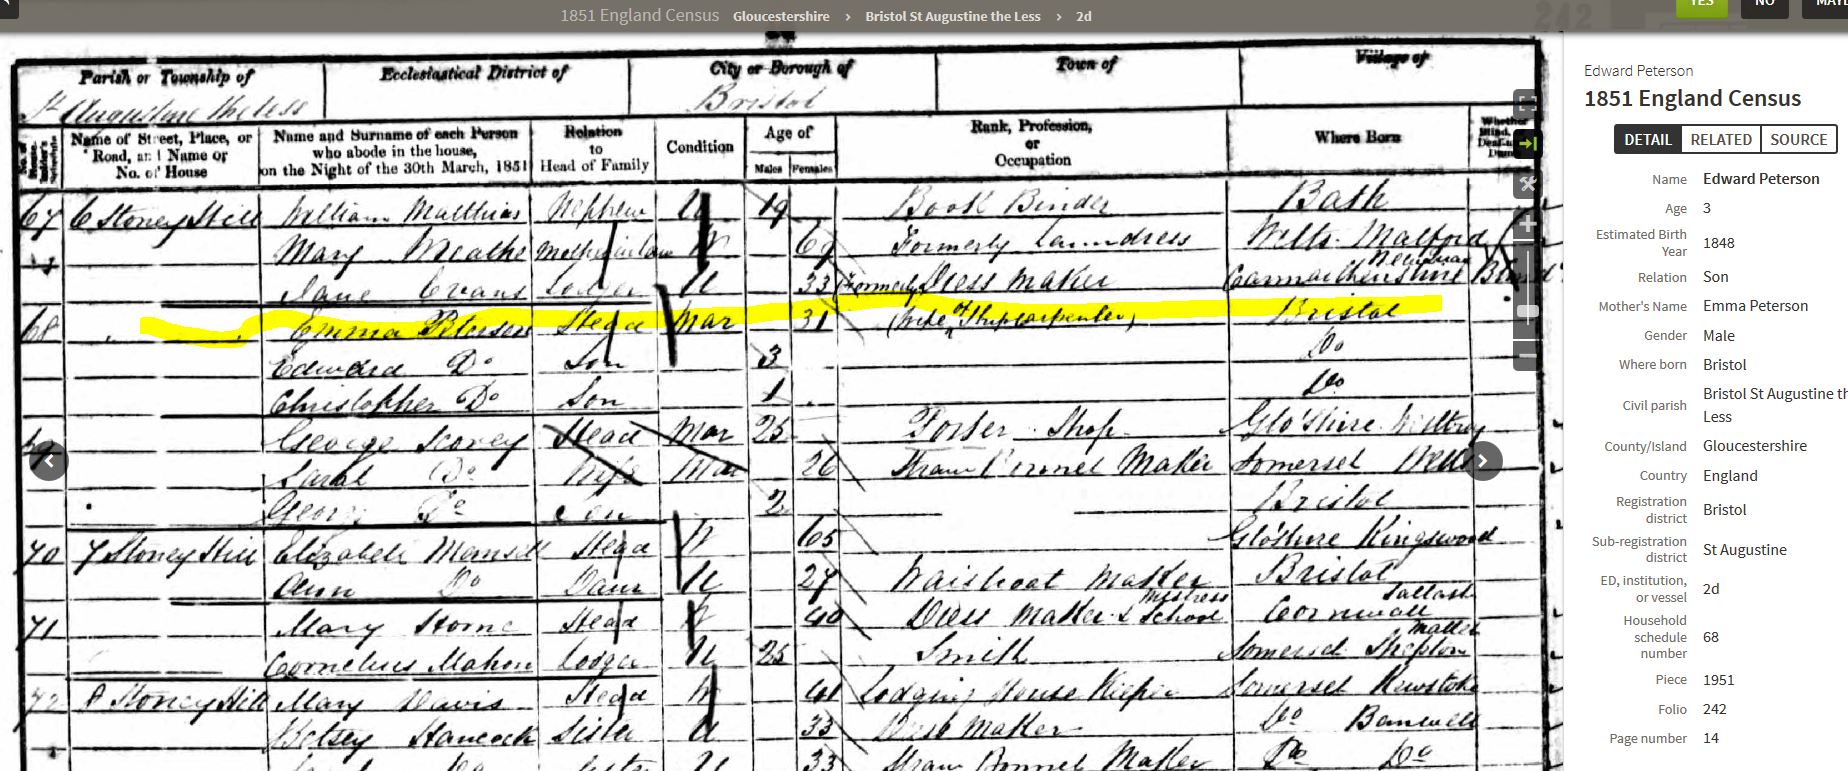 1851 England Census Gloucestershire › Bristol St Augustine the Less › 2d
YES NO
Parish or Township of Ecclesiastical District of City or Borough of Town of Village of
St Augustine the Less Bristol
Name of Street, Place, or Road, and Name or No. of House Name and Surname of each Person who abode in the house, on the Night of the 30th March, 1851 Relation to Head of Family Condition Age of Males Females Rank, Profession, or Occupation Where Born
67 6 Stoney Hill William Matthias Nephew U 19 Book Binder Bath
Mary Mother in law W 69 Formerly Laundress Wilts
Jane Evans Lodger U 33 (Formerly) Dress Maker Carmarthenshire
68 Emma Peterson Head Mar 31 (Wife of Ship carpenter) Bristol
Edward Do Son 3 Do
Christopher Do Son 1 Do
George Head Mar 25 Porter Shop Glo'shire
Sarah Do Wife Mar 26 Straw Bonnet Maker Somerset Wells
George Do Son 2 Bristol
70 7 Stoney Hill Elizabeth Head W 65 Glo'shire Kingswood
Ann Do Daur U 27 Waistcoat Maker Bristol
71 Mary Horne Head W 40 Dress Maker & School Mistress Cornwall
Cornelius Mahon Lodger U 25 Smith Somerset Shepton Mallet
72 8 Stoney Hill Mary Davis Head W 41 Lodging House Keeper Somerset
Betsey Hancock Sister U 33 Do Banwell
33 Straw Bonnet Maker Do Do
Edward Peterson
1851 England Census
DETAIL RELATED SOURCE
Name Edward Peterson
Age 3
Estimated Birth Year 1848
Relation Son
Mother's Name Emma Peterson
Gender Male
Where born Bristol
Civil parish Bristol St Augustine th Less
County/Island Gloucestershire
Country England
Registration district Bristol
Sub-registration district St Augustine
ED, institution, or vessel 2d
Household schedule number 68
Piece 1951
Folio 242
Page number 14